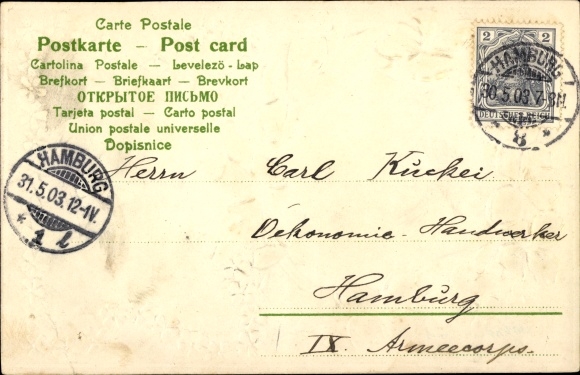 Carte Postale
Postkarte – Post card
Cartolina Postale – Levelezö-Lap
Brefkort – Briefkaart – Brevkort
ОТКРЫТОЕ ПИСЬМО
Tarjeta postal – Carto postal
Union postale universelle
Dopisnice
2 2
DEUTSCHES REICH
HAMBURG
30.5.03.7-8N.
* 8 *
HAMBURG
31.5.03.12-1V.
* 1 l
Herrn Carl Kuckei
Oekonomie-Handwerker
Hamburg
IX. Armeecorps.